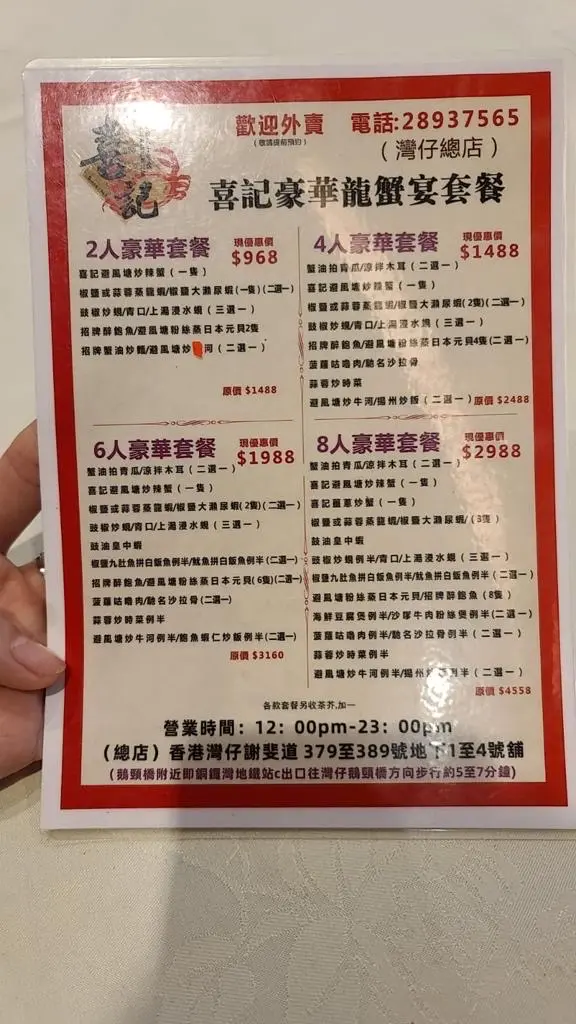 喜記
歡迎外賣 電話:28937565
(敬請提前預約) (灣仔總店)
喜記豪華龍蟹宴套餐
2人豪華套餐 現優惠價 $968
喜記避風塘炒辣蟹(一隻)
椒鹽或蒜蓉蒸龍蝦/椒鹽大瀨尿蝦(一隻)(二選一)
豉椒炒蜆/青口/上湯浸水蜆(三選一)
招牌醉鮑魚/避風塘粉絲蒸日本元貝2隻
招牌蟹油炒麵/避風塘炒 河(二選一)
原價 $1488
4人豪華套餐 現優惠價 $1488
蟹油拍青瓜/涼拌木耳(二選一)
喜記避風塘炒辣蟹(一隻)
椒鹽或蒜蓉蒸龍蝦/椒鹽大瀨尿蝦(2隻)(二選一)
豉椒炒蜆/青口/上湯浸水蜆(三選一)
招牌醉鮑魚/避風塘粉絲蒸日本元貝4隻(二選一)
菠蘿咕嚕肉/馳名沙拉骨
蒜蓉炒時菜
避風塘炒牛河/揚州炒飯(二選一) 原價 $2488
6人豪華套餐 現優惠價 $1988
蟹油拍青瓜/涼拌木耳(二選一)
喜記避風塘炒辣蟹(一隻)
椒鹽或蒜蓉蒸龍蝦/椒鹽大瀨尿蝦(2隻)(二選一)
豉椒炒蜆/青口/上湯浸水蜆(三選一)
豉油皇中蝦
椒鹽九肚魚拼白飯魚例半/魷魚拼白飯魚例半(二選一)
招牌醉鮑魚/避風塘粉絲蒸日本元貝(6隻)(二選一)
菠蘿咕嚕肉/馳名沙拉骨(二選一)
蒜蓉炒時菜例半
避風塘炒牛河例半/鮑魚蝦仁炒飯例半(二選一)
原價 $3160
8人豪華套餐 現優惠價 $2988
蟹油拍青瓜/涼拌木耳(二選一)
喜記避風塘炒辣蟹(一隻)
喜記薑蔥炒蟹(一隻)
椒鹽或蒜蓉蒸龍蝦/椒鹽大瀨尿蝦/(3隻)
豉油皇中蝦
豉椒炒蜆例半/青口/上湯浸水蜆(三選一)
椒鹽九肚魚拼白飯魚例半/魷魚拼白飯魚例半(二選一)
避風塘粉絲蒸日本元貝/招牌醉鮑魚(8隻)
海鮮豆腐煲例半/沙嗲牛肉粉絲煲例半(二選一)
菠蘿咕嚕肉例半/馳名沙拉骨例半(二選一)
蒜蓉炒時菜例半
避風塘炒牛河例半/揚州炒 例半(二選一)
原價 $4558
各款套餐另收茶芥,加一
營業時間：12：00pm-23：00pm
(總店)香港灣仔謝斐道 379至389號地下1至4號舖
(鵝頸橋附近即銅鑼灣地鐵站c出口往灣仔鵝頸橋方向步行約5至7分鐘)